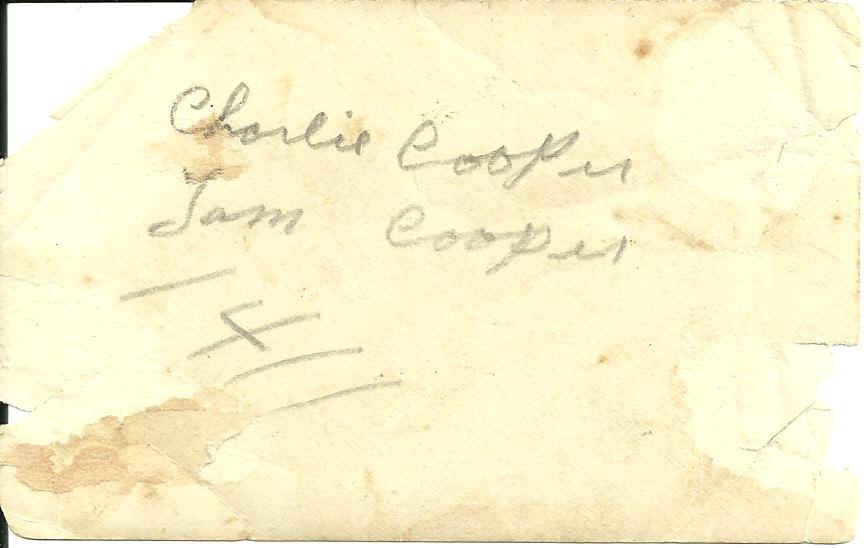 Charlie Cooper
Sam Cooper
X